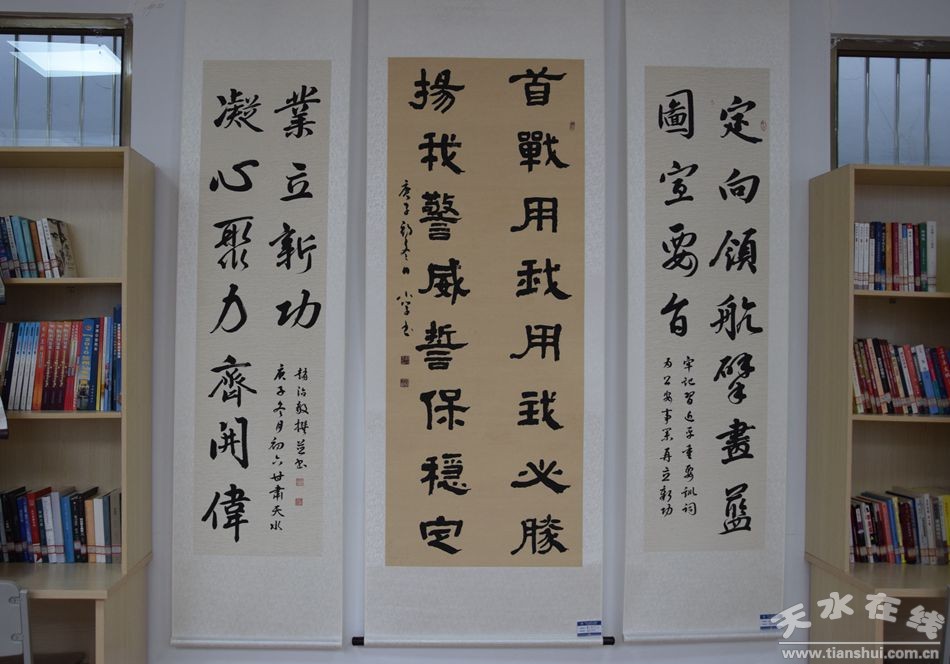 定向領航擘畫藍
圖宣要旨
牢记習近平重要訓詞
为公安事業再立新功
首戰用我用我必勝
揚我警威誓保穩定
庚子初冬
凝心聚力齊開偉
業立新功
庚子冬月初六甘肅天水
撰並書
天水在线
www.tianshui.com.cn